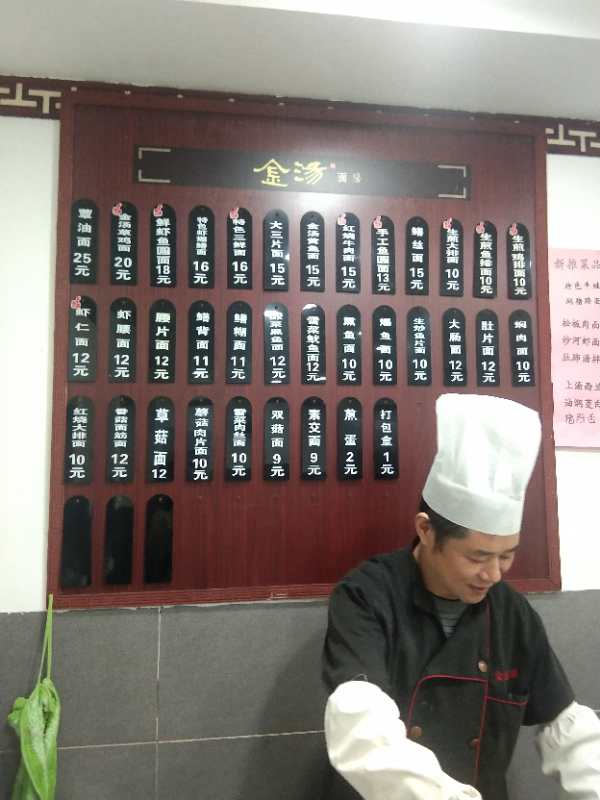 金汤
面馆
蕈油面 25元
金汤草鸡面 20元
鲜虾鱼圆面 18元
特色虾爆鳝面 16元
特色三鲜面 16元
大三片面 15元
金汤黄鱼面 15元
红焖牛肉面 15元
手工鱼圆面 13元
鳝丝面 15元
生煎大排面 10元
生煎鱼排面 10元
生煎鸡排面 10元
虾仁面 12元
虾腰面 12元
腰片面 12元
鳝背面 11元
鳝糊面 11元
雪菜黑鱼面 12元
雪菜鱿鱼面 12元
熏鱼面 10元
爆鱼面 10元
生炒鱼片面 10元
大肠面 12元
肚片面 12元
焖肉面 10元
红烧大排面 10元
香菇面筋面 12元
草菇面 12
蘑菇肉片面 10元
雪菜肉丝面 10元
双菇面 9元
素交面 9元
煎蛋 2元
打包盒 1元
新推菜品